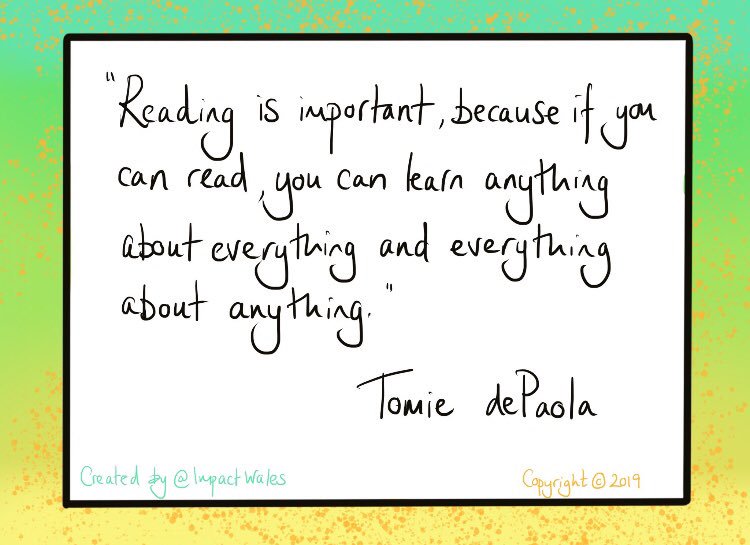 "Reading is important, because if you
can read, you can learn anything
about everything and everything
about anything."
Tomie dePaola
Created by @ImpactWales
Copyright © 2019